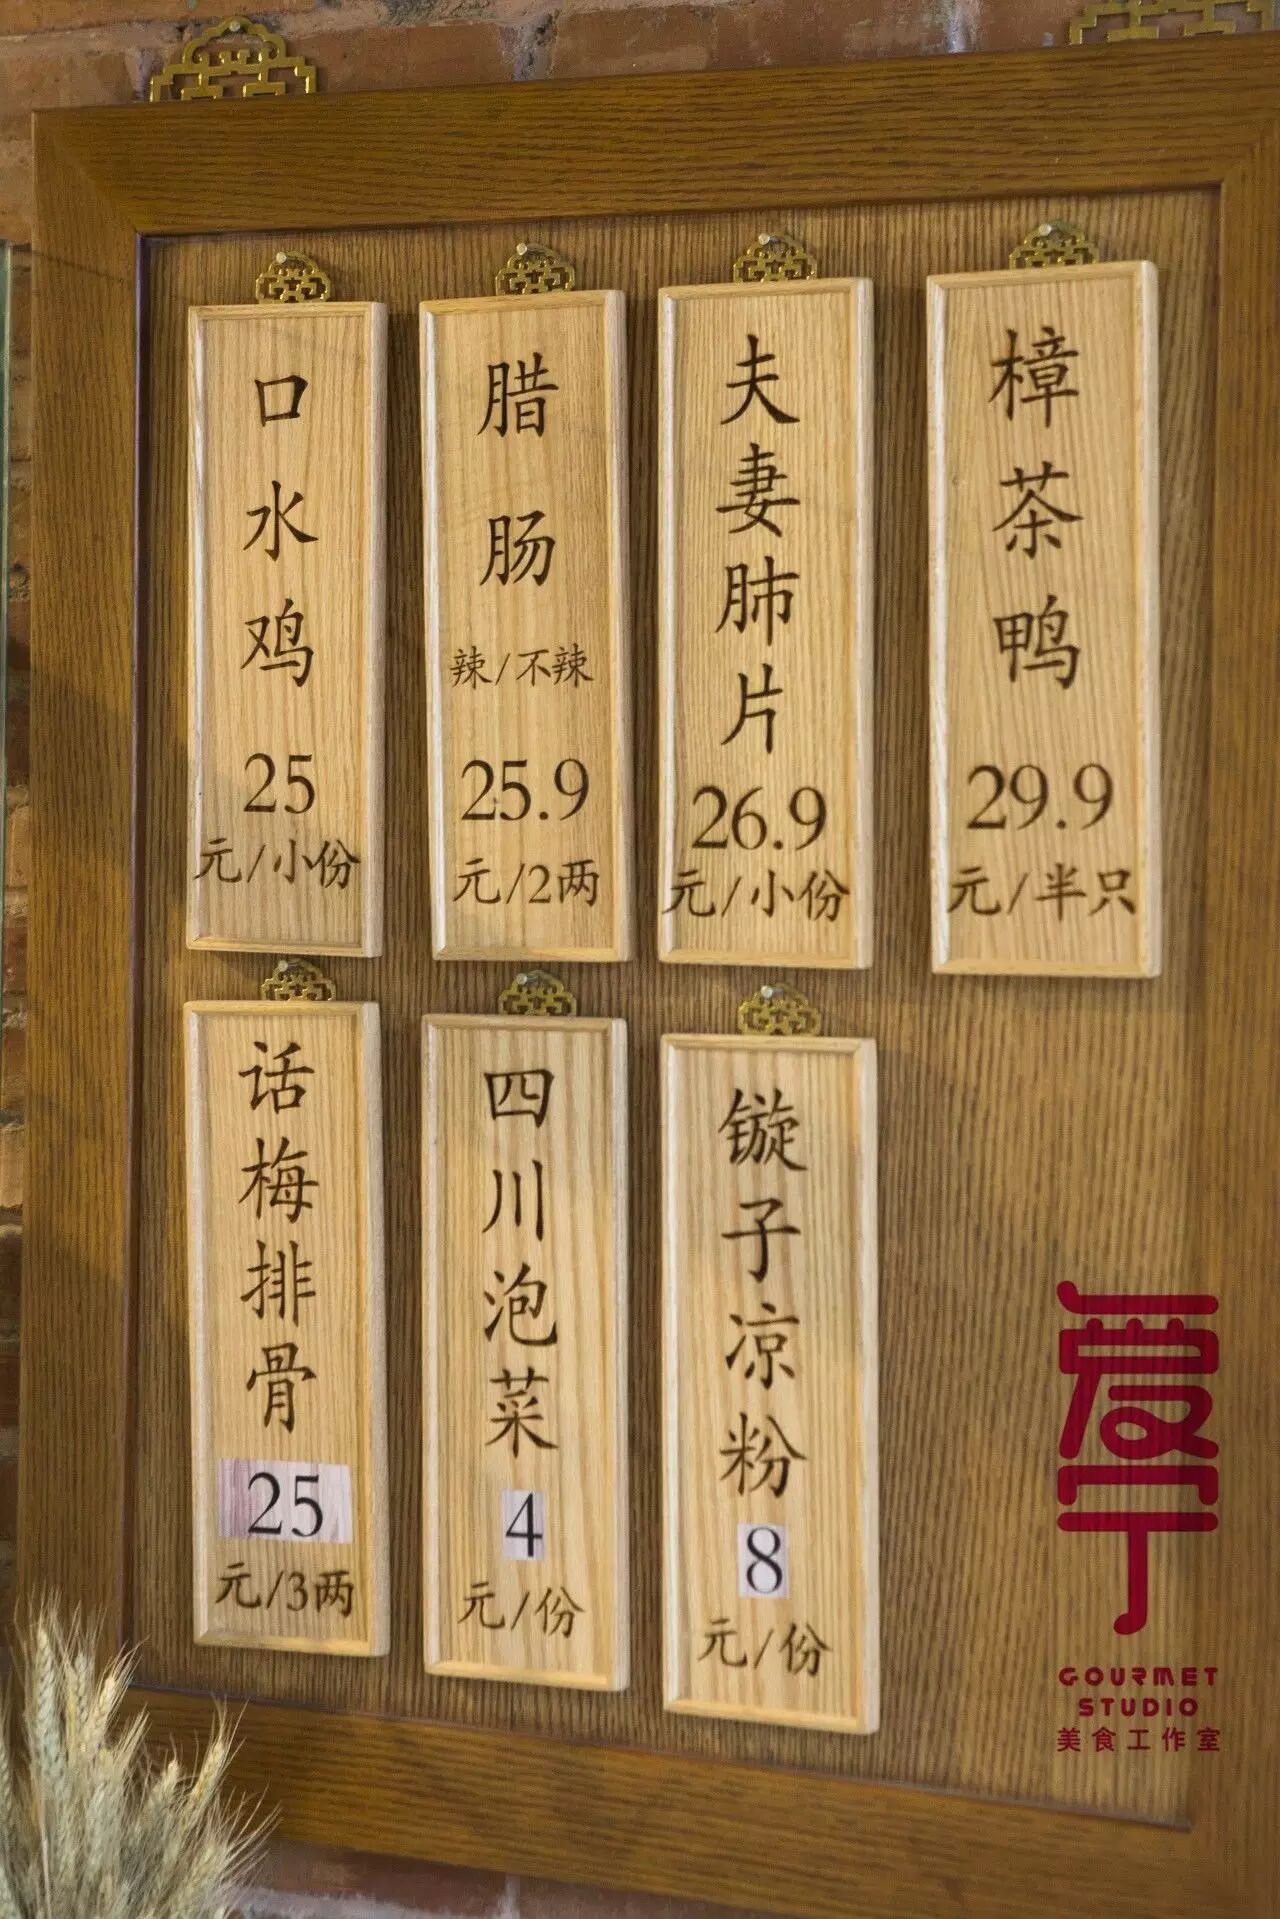 口水鸡
25
元/小份
腊肠
辣/不辣
25.9
元/2两
夫妻肺片
26.9
元/小份
樟茶鸭
29.9
元/半只
话梅排骨
25
元/3两
四川泡菜
4
元/份
镟子凉粉
8
元/份
爱宁
GOURMET
STUDIO
美食工作室